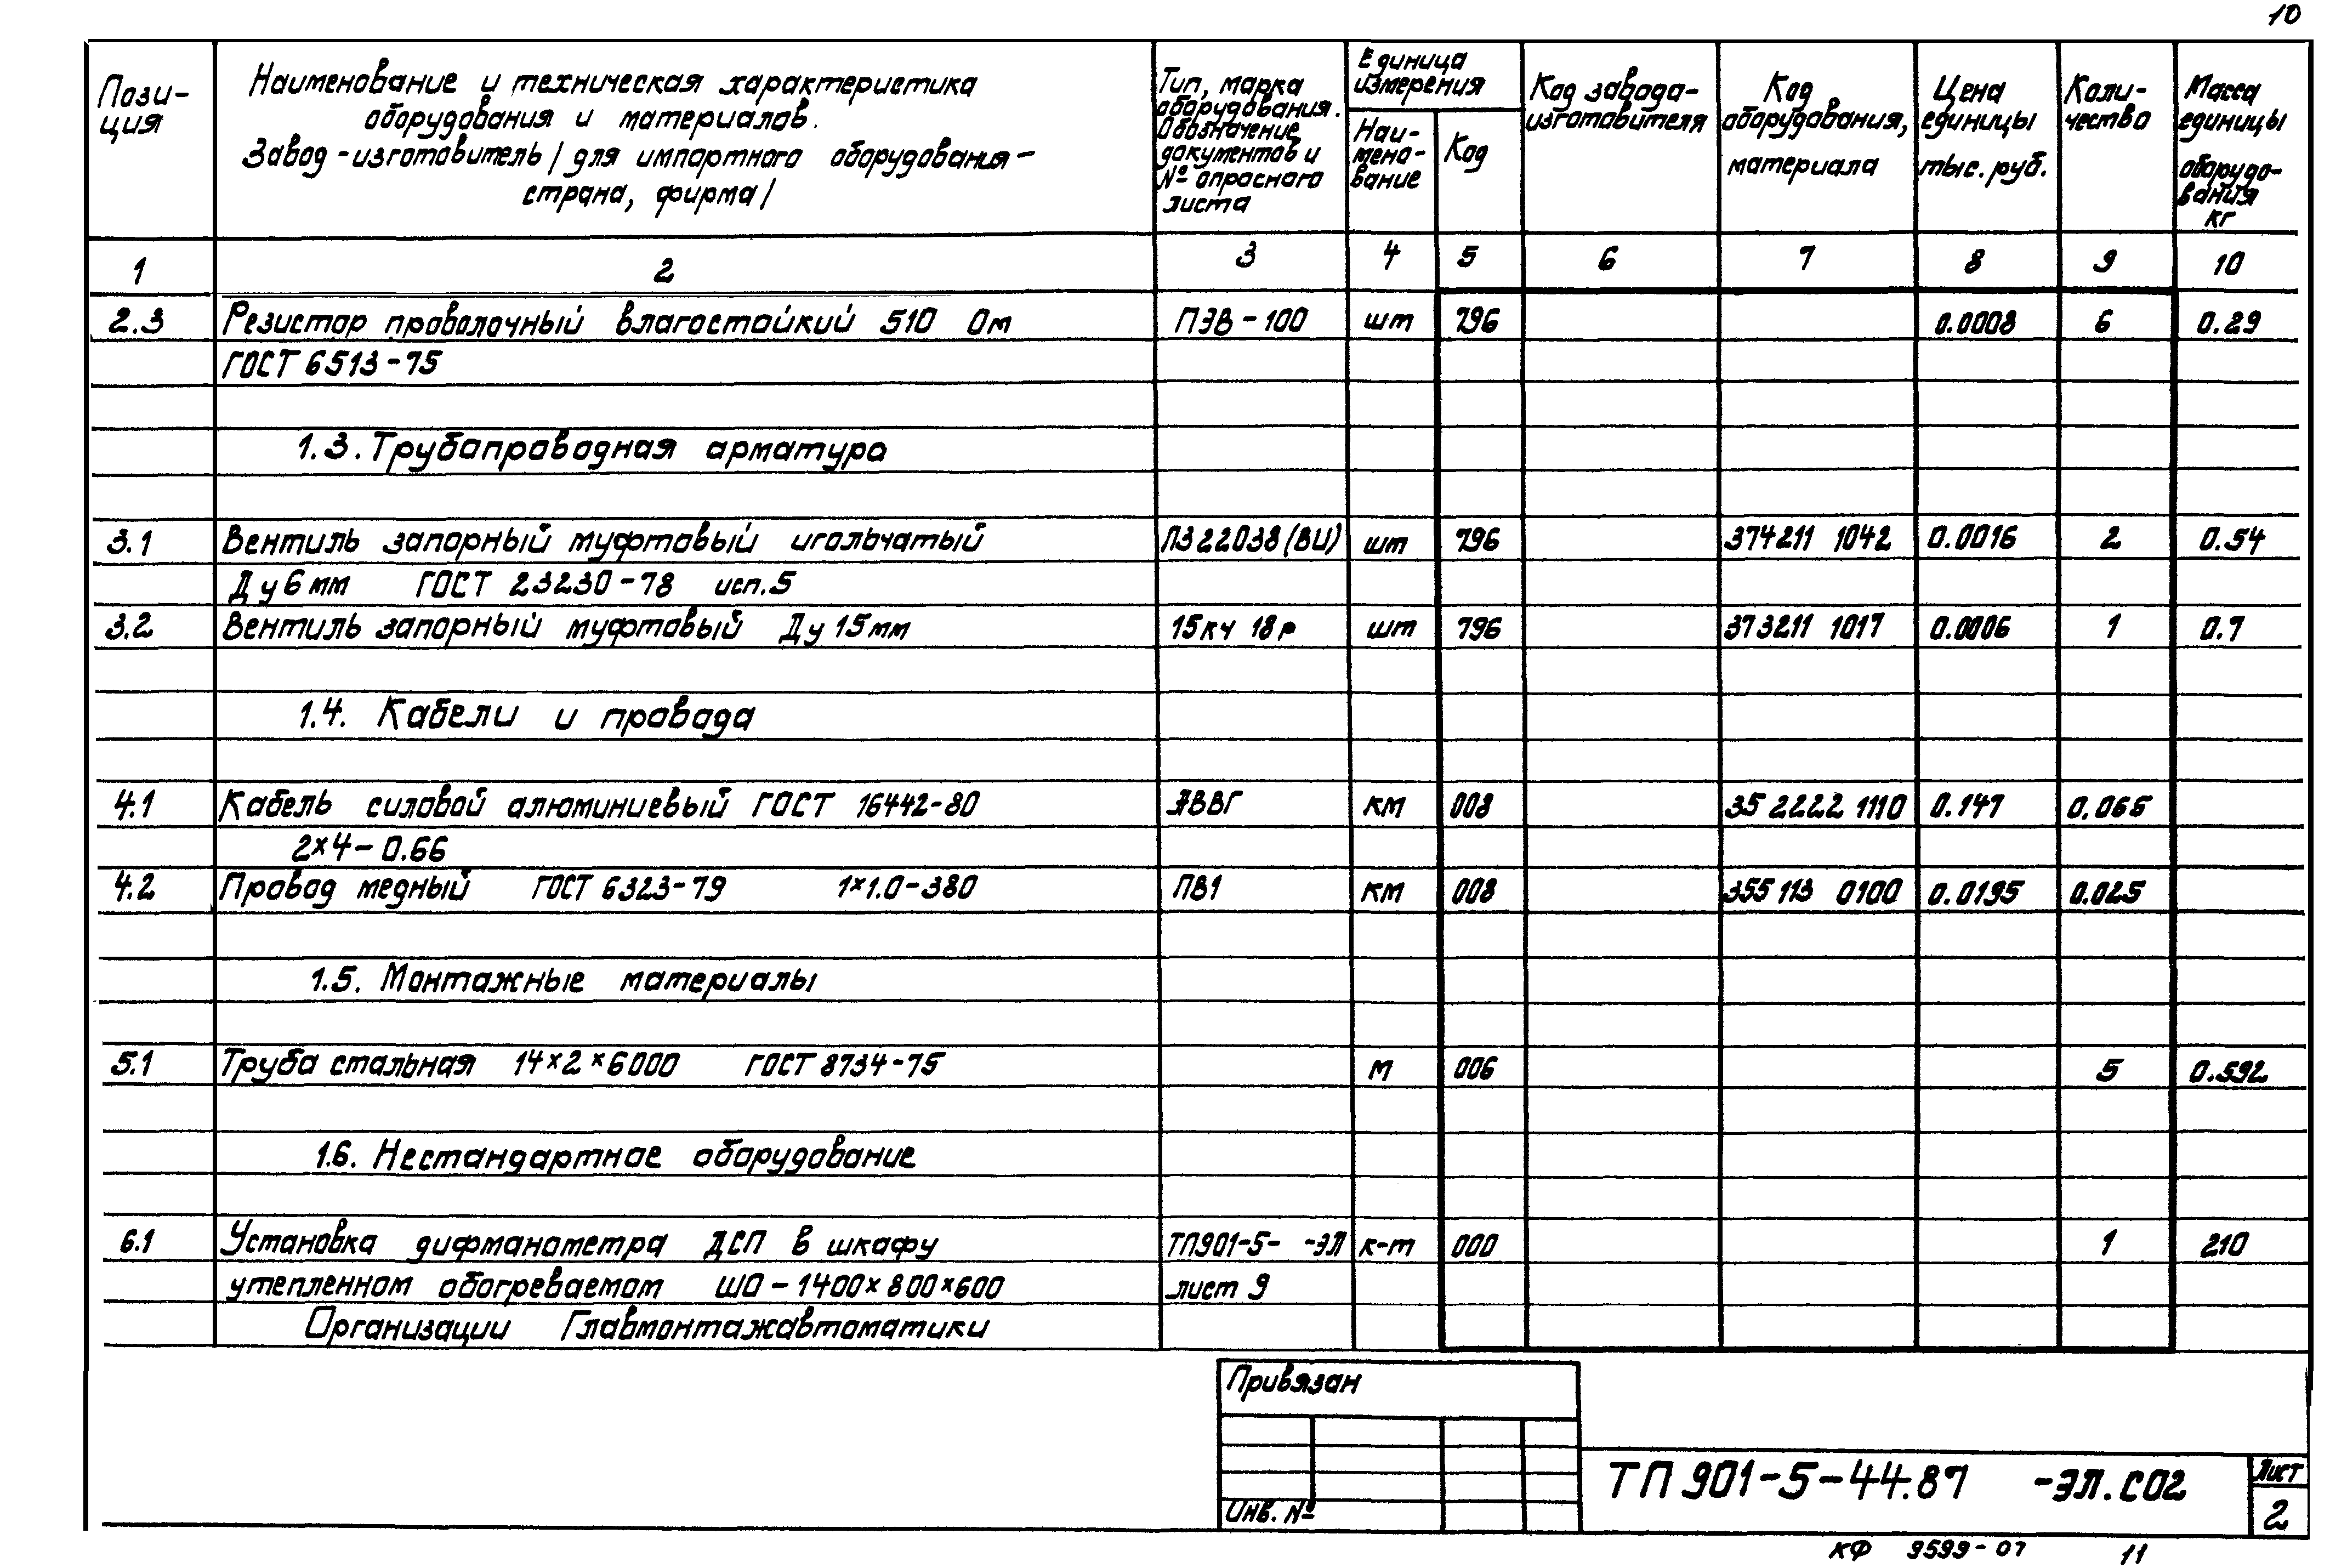 10
Пози-
ция
Наименование и техническая характеристика
оборудования и материалов.
Завод-изготовитель /для импортного оборудования-
страна, фирма/
Тип, марка
оборудования.
Обозначение
документов и
№ опросного
листа
Единица
измерения
Наи-
мено-
вание
Код
Код завода-
изготовителя
Код
оборудования,
материала
Цена
единицы
тыс. руб.
Коли-
чество
Масса
единицы
оборудо-
вания
кг
1 2 3 4 5 6 7 8 9 10
2.3 Резистор проволочный влагостойкий 510 Ом ПЭВ-100 шт 796 0.0008 6 0.29
ГОСТ 6513-75
1.3. Трубопроводная арматура
3.1 Вентиль запорный муфтовый игольчатый ПЗ 22038(ВИ) шт 796 374211 1042 0.0016 2 0.54
Ду 6 мм ГОСТ 23230-78 исп.5
3.2 Вентиль запорный муфтовый Ду 15 мм 15кч 18р шт 796 373211 1017 0.0006 1 0.7
1.4. Кабели и провода
4.1 Кабель силовой алюминиевый ГОСТ 16442-80 АВВГ км 008 35 2222 1110 0.147 0.065
2×4-0.66
4.2 Провод медный ГОСТ 6323-79 1×1.0-380 ПВ1 км 008 355 113 0100 0.0195 0.025
1.5. Монтажные материалы
5.1 Труба стальная 14×2×6000 ГОСТ 8734-75 м 006 5 0.592
1.6. Нестандартное оборудование
6.1 Установка дифманометра ДСП в шкафу ТП901-5- -ЭЛ к-т 000 1 210
утепленном обогреваемом ШО-1400×800×600 лист 9
Организации Главмонтажавтоматики
Привязан
Инв. №
ТП 901-5-44.87 -ЭЛ.СО2
Лист
2
КФ 9599-07 11